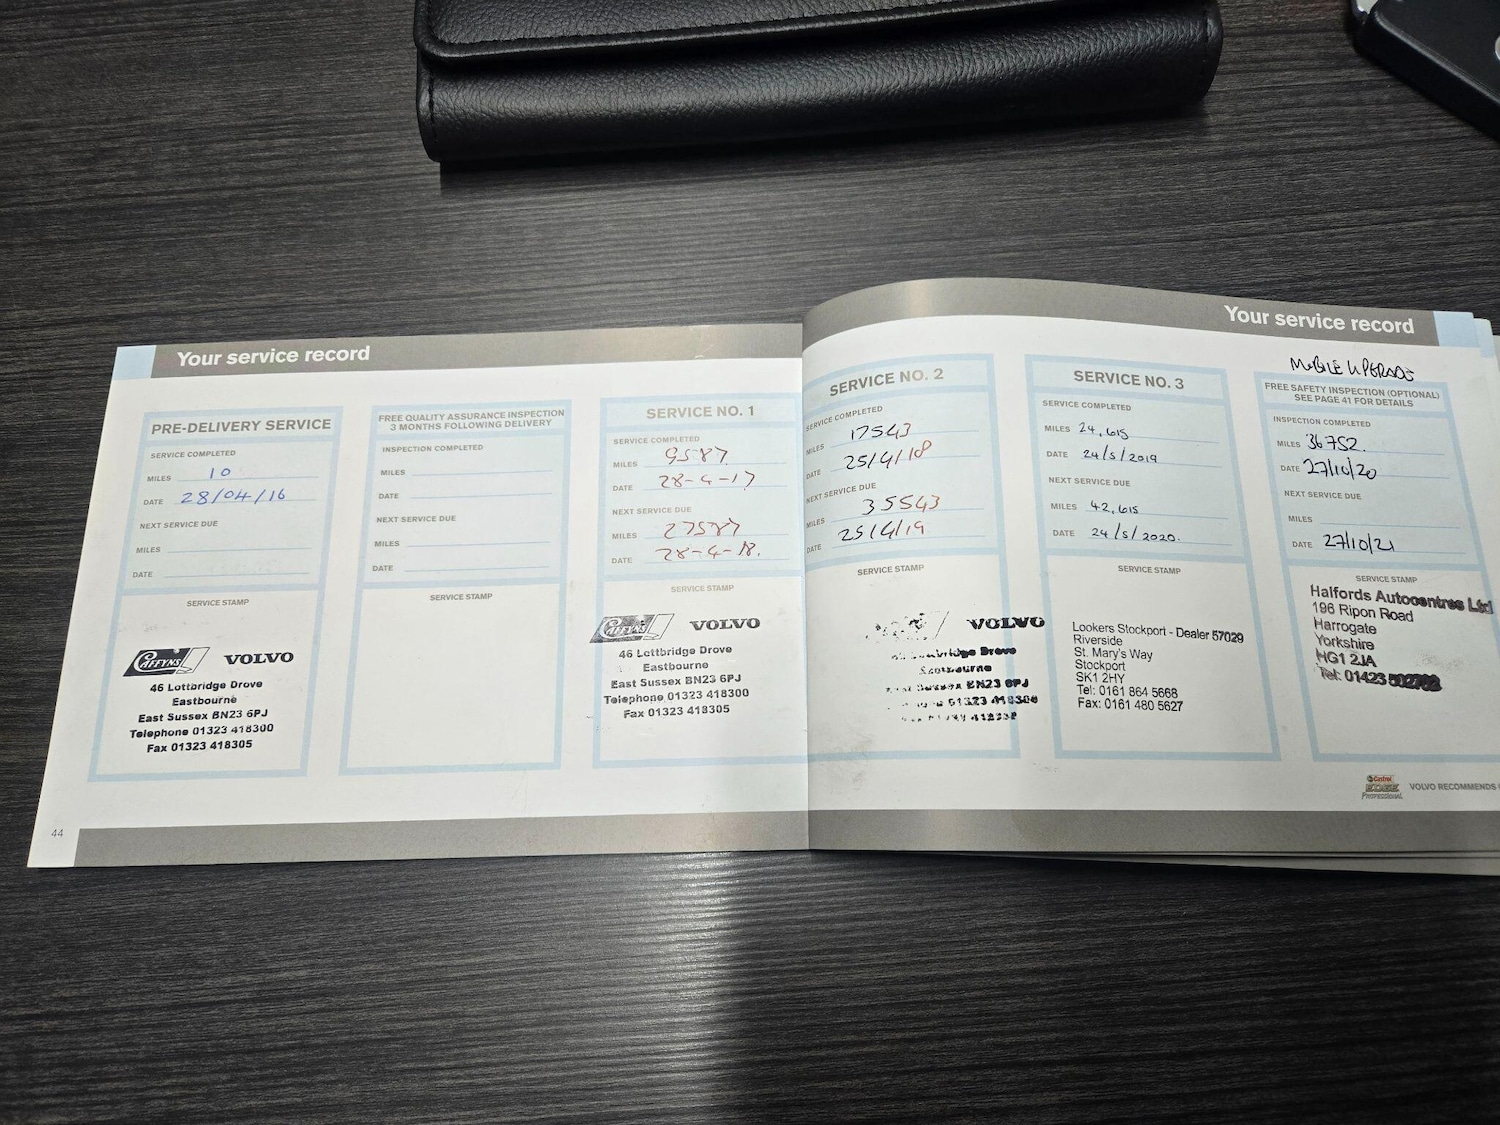 Your service record
PRE-DELIVERY SERVICE
SERVICE COMPLETED
MILES 10
DATE 28/04/16
NEXT SERVICE DUE
MILES
DATE
SERVICE STAMP
CAFFYNS VOLVO
46 Lottbridge Drove
Eastbourne
East Sussex BN23 6PJ
Telephone 01323 418300
Fax 01323 418305
FREE QUALITY ASSURANCE INSPECTION
3 MONTHS FOLLOWING DELIVERY
INSPECTION COMPLETED
MILES
DATE
NEXT SERVICE DUE
MILES
DATE
SERVICE STAMP
SERVICE NO. 1
SERVICE COMPLETED
MILES 9587
DATE 28-4-17
NEXT SERVICE DUE
MILES 27587
DATE 28-4-18.
SERVICE STAMP
CAFFYNS VOLVO
46 Lottbridge Drove
Eastbourne
East Sussex BN23 6PJ
Telephone 01323 418300
Fax 01323 418305
44
Your service record
SERVICE NO. 2
SERVICE COMPLETED
MILES 17543
DATE 25/4/18
NEXT SERVICE DUE
MILES 35543
DATE 25/4/19
SERVICE STAMP
VOLVO
Drove
Eastbourne
BN23 6PJ
01323 418300
SERVICE NO. 3
SERVICE COMPLETED
MILES 24,615
DATE 24/5/2019
NEXT SERVICE DUE
MILES 42,615
DATE 24/5/2020.
SERVICE STAMP
Lookers Stockport - Dealer 57029
Riverside
St. Mary's Way
Stockport
SK1 2HY
Tel: 0161 864 5668
Fax: 0161 480 5627
MOBILE UPGRADE
FREE SAFETY INSPECTION (OPTIONAL)
SEE PAGE 41 FOR DETAILS
INSPECTION COMPLETED
MILES 36752.
DATE 27/10/20
NEXT SERVICE DUE
MILES
DATE 27/10/21
SERVICE STAMP
Halfords Autocentres Ltd
196 Ripon Road
Harrogate
Yorkshire
HG1 2JA
Tel: 01423
Castrol
EDGE
Professional
VOLVO RECOMMENDS